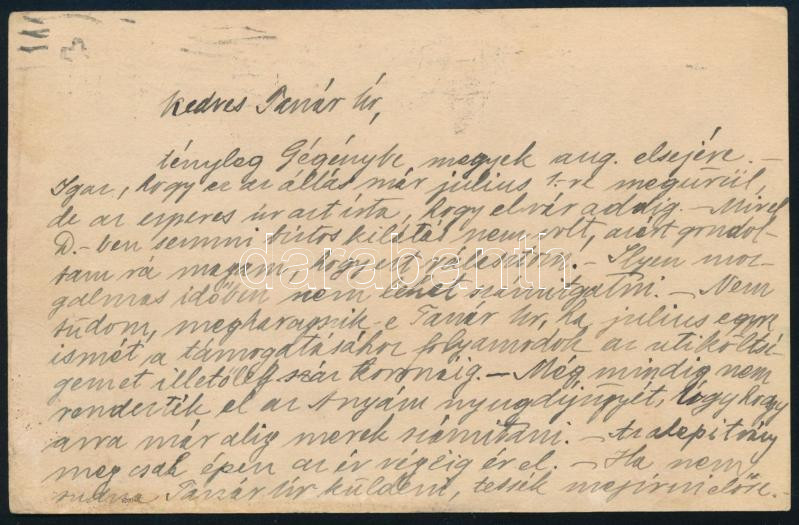 Kedves Tanár Úr,
tényleg Gégénybe megyek aug. elsejére. –
Igaz, hogy ez az állás már július 1.-re megürül,
de az esperes úr azt írta, hogy elvár addig. – Mivel
D.-ben semmi biztos kilátás nem volt, azért gondol-
tam rá magam, hogy ezt választom. – Ilyen moz-
galmas időben nem lehet számítgatni. – Nem
tudom, megharagszik-e Tanár Úr, ha július
ismét a támogatásához folyamodok az utiköltsé-
gemet illetőleg száz koronáig. – Még mindig nem
rendezték el az Anyám nyugdíjügyét, úgy hogy
arra már alig merek számítani. – Az alapítvány
meg csak épen az év végéig ér el. – Ha nem
tudna Tanár Úr küldeni, tessék megírni előre. –
darabanth.com